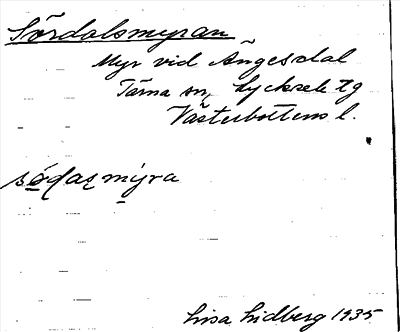 Sördalsmyran
Myr vid Ängesdal
Tärna sn, Lycksele tg
Västerbottens l.
Lisa Lidberg 1935